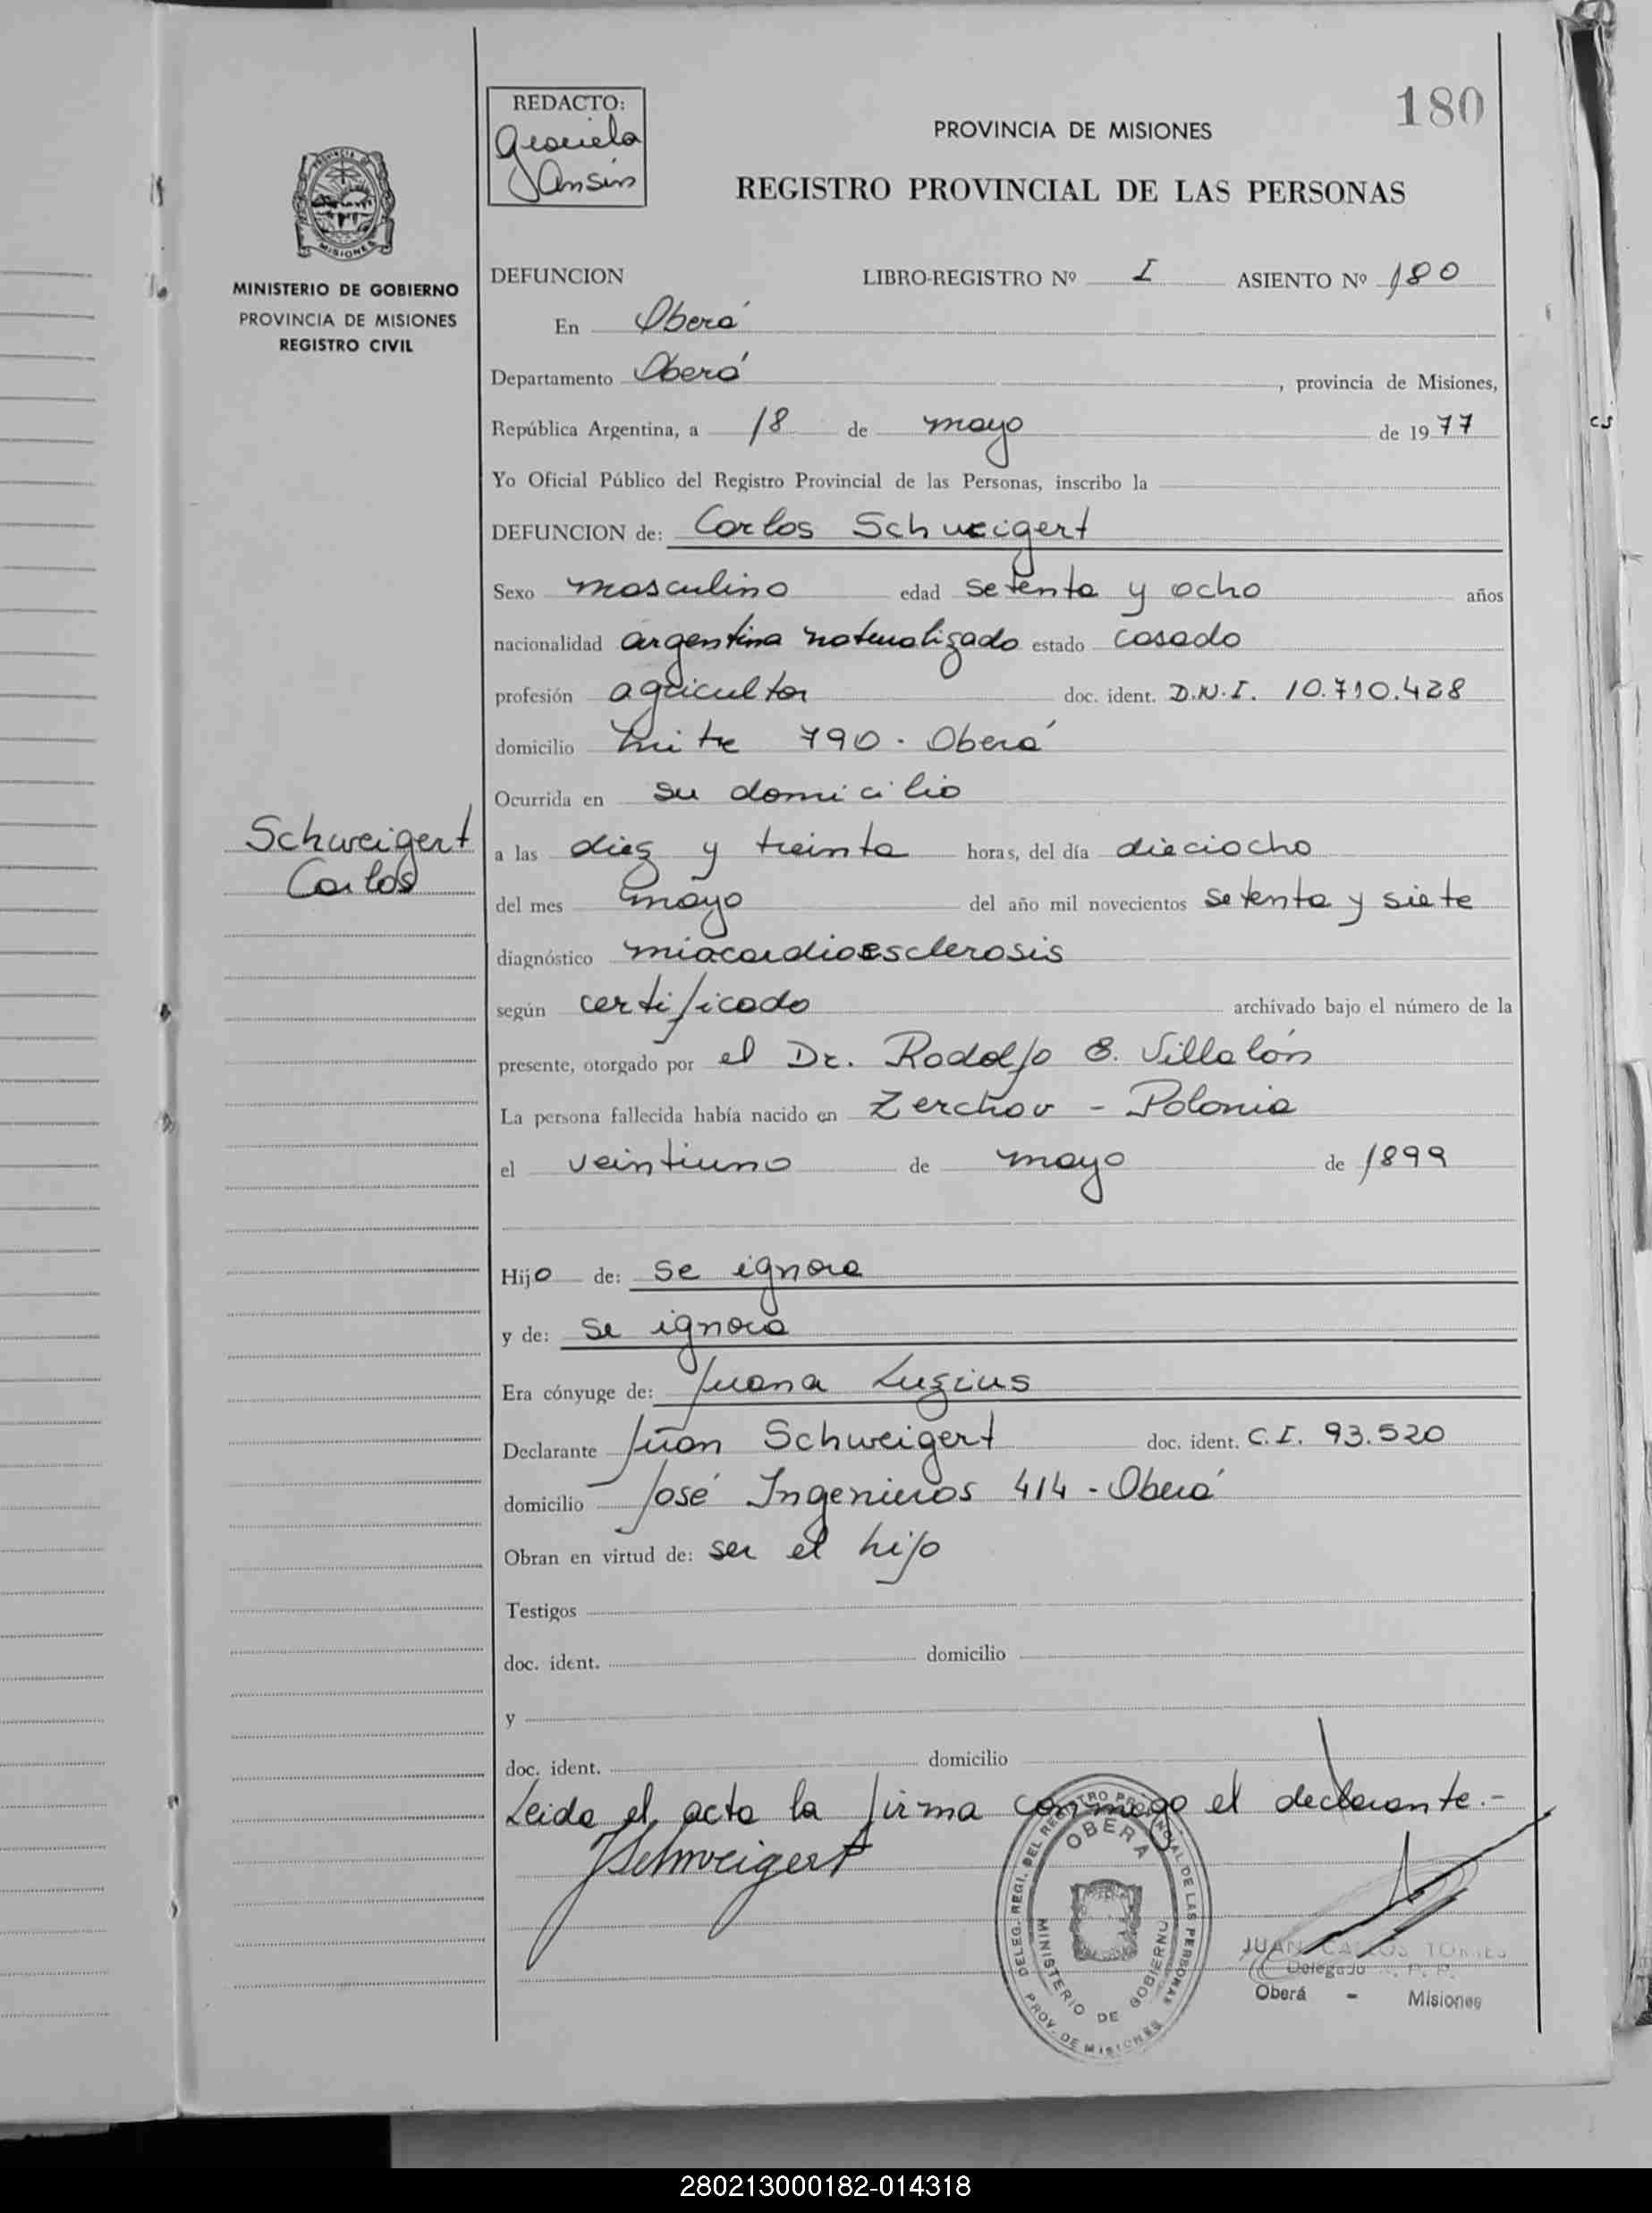 REDACTO:
Graciela
Jansin
180
PROVINCIA DE MISIONES
REGISTRO PROVINCIAL DE LAS PERSONAS
PROVINCIA DE
MISIONES
MINISTERIO DE GOBIERNO
PROVINCIA DE MISIONES
REGISTRO CIVIL
DEFUNCION LIBRO-REGISTRO Nº I ASIENTO Nº 180
En Oberá
Departamento Oberá, provincia de Misiones,
República Argentina, a 18 de mayo de 1977
Yo Oficial Público del Registro Provincial de las Personas, inscribo la
DEFUNCION de: Carlos Schweigert
Sexo masculino edad setenta y ocho años
nacionalidad argentina naturalizado estado casado
profesión agricultor doc. ident. D.N.I. 10.710.428
domicilio Mitre 790 - Oberá
Ocurrida en su domicilio
Schweigert
Carlos
a las diez y treinta horas, del día dieciocho
del mes mayo del año mil novecientos setenta y siete
diagnóstico miocardioesclerosis
según certificado archivado bajo el número de la
presente, otorgado por el Dr. Rodolfo E. Villalón
La persona fallecida había nacido en Zerchov - Polonia
el veintiuno de mayo de 1899
Hijo de: se ignora
y de: se ignora
Era cónyuge de: Juana Luzius
Declarante Juan Schweigert doc. ident. C.I. 93.520
domicilio José Ingenieros 414 - Oberá
Obran en virtud de: ser el hijo
Testigos
doc. ident. domicilio
y
doc. ident. domicilio
Leida el acta la firma conmigo el declarante.-
JSchweigert
DELEG. REGI. DEL REGISTRO PROVINCIAL DE LAS PERSONAS
OBERA
MINISTERIO DE GOBIERNO
PROV. DE MISIONES
JUAN CARLOS TORRES
Delegado R. P. P.
Oberá - Misiones
cs
280213000182-014318